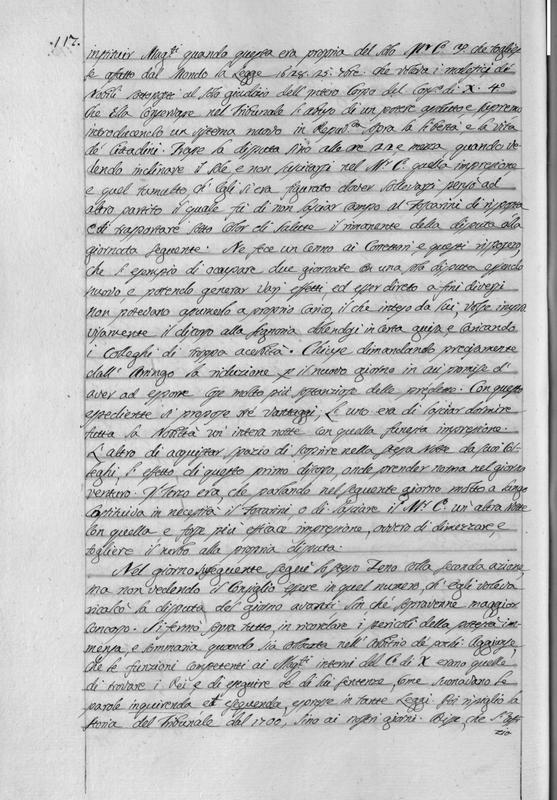 117.
instituir Mag.ti quando questa era propria del solo M.r C.o che toglies-
se affatto dal Mondo la Legge 1628. 25. 7bre. che voleva i malefizi de'
Nobili sottoposti al solo giudizio dell'intero Corpo del Cons.o di X.
che Ella conservare nel Tribunale l'abuso di un potere assoluto e supremo
introducendo un sistema nuovo in Repub.ca sopra la libertà e la vita
de' Cittadini. Trasse la disputa sino alle ore 22 e mezza quando ve-
dendo inclinare il Sole e non suscitarsi nel M.r C. quella impressione
e quel tumulto, ch'Egli si era figurato dover sollevarsi pensò ad
altro partito il quale fu di non lasciar campo al Foscarini di risposta
e di trapportare sotto color di salute il rimanente della disputa alla
giornata seguente. Ne fece un cenno ai Correttori e questi risposero,
che l'esempio di occupare due giornate in una sola disputa essendo
nuovo, e potendo generar varj effetti, ed esser diretto a fini diversi
non potevano assumerlo a proprio carico, il che inteso da lui, volse impro-
visamente il discorso alla Signoria dolendosi in certa guisa e caricando
i Colleghi di troppa acerbità. Chiese dimandando precisamente
dall'Arringo la riduzione p il nuovo giorno in cui promise d'
aver ad esporre cose molto più sostanziose delle predette. Con questo
espediente si propose tre vantaggi; Le uno era di lasciar dormire
tutta la Nobiltà un'intera notte con quella funesta impressione.
L'altro di acquistar spazio di scoprire nella stessa Notte da suoi Col-
leghi, l'effetto di questo primo discorso, onde prender norma nel giorno
venturo. Il terzo era, che parlando nel seguente giorno molto a lungo
costituiva in necessità il Foscarini o di lasciare il M.r C. un'altra Notte
con quella e forse più efficace impressione, ovvero di dimezzare, e
togliere il nerbo alla propria disputa:
Nel giorno susseguente seguì lo stesso Zeno colla seconda azione,
ma non vedendo il Consiglio essere in quel numero, ch'egli voleva
ricalcò la disputa del giorno avanti sin che sopravenne maggior
concorso. Si fermò sopra tutto, in ricordare i pericoli della potestà im-
mensa, e sommaria quando sia collocata nell'arbitrio de' pochi. Aggiunse,
che le funzioni competenti ai Mag.ti interni del C.o di X erano quelle
di trovare i Rei e di eseguire le di lui sentenze, come suonavano le
parole inquirenda et exequenda, espresse in tante Leggi. Poi ripigliò la
storia del Tribunale dal 1700, sino ai nostri giorni. Disse, che
zio